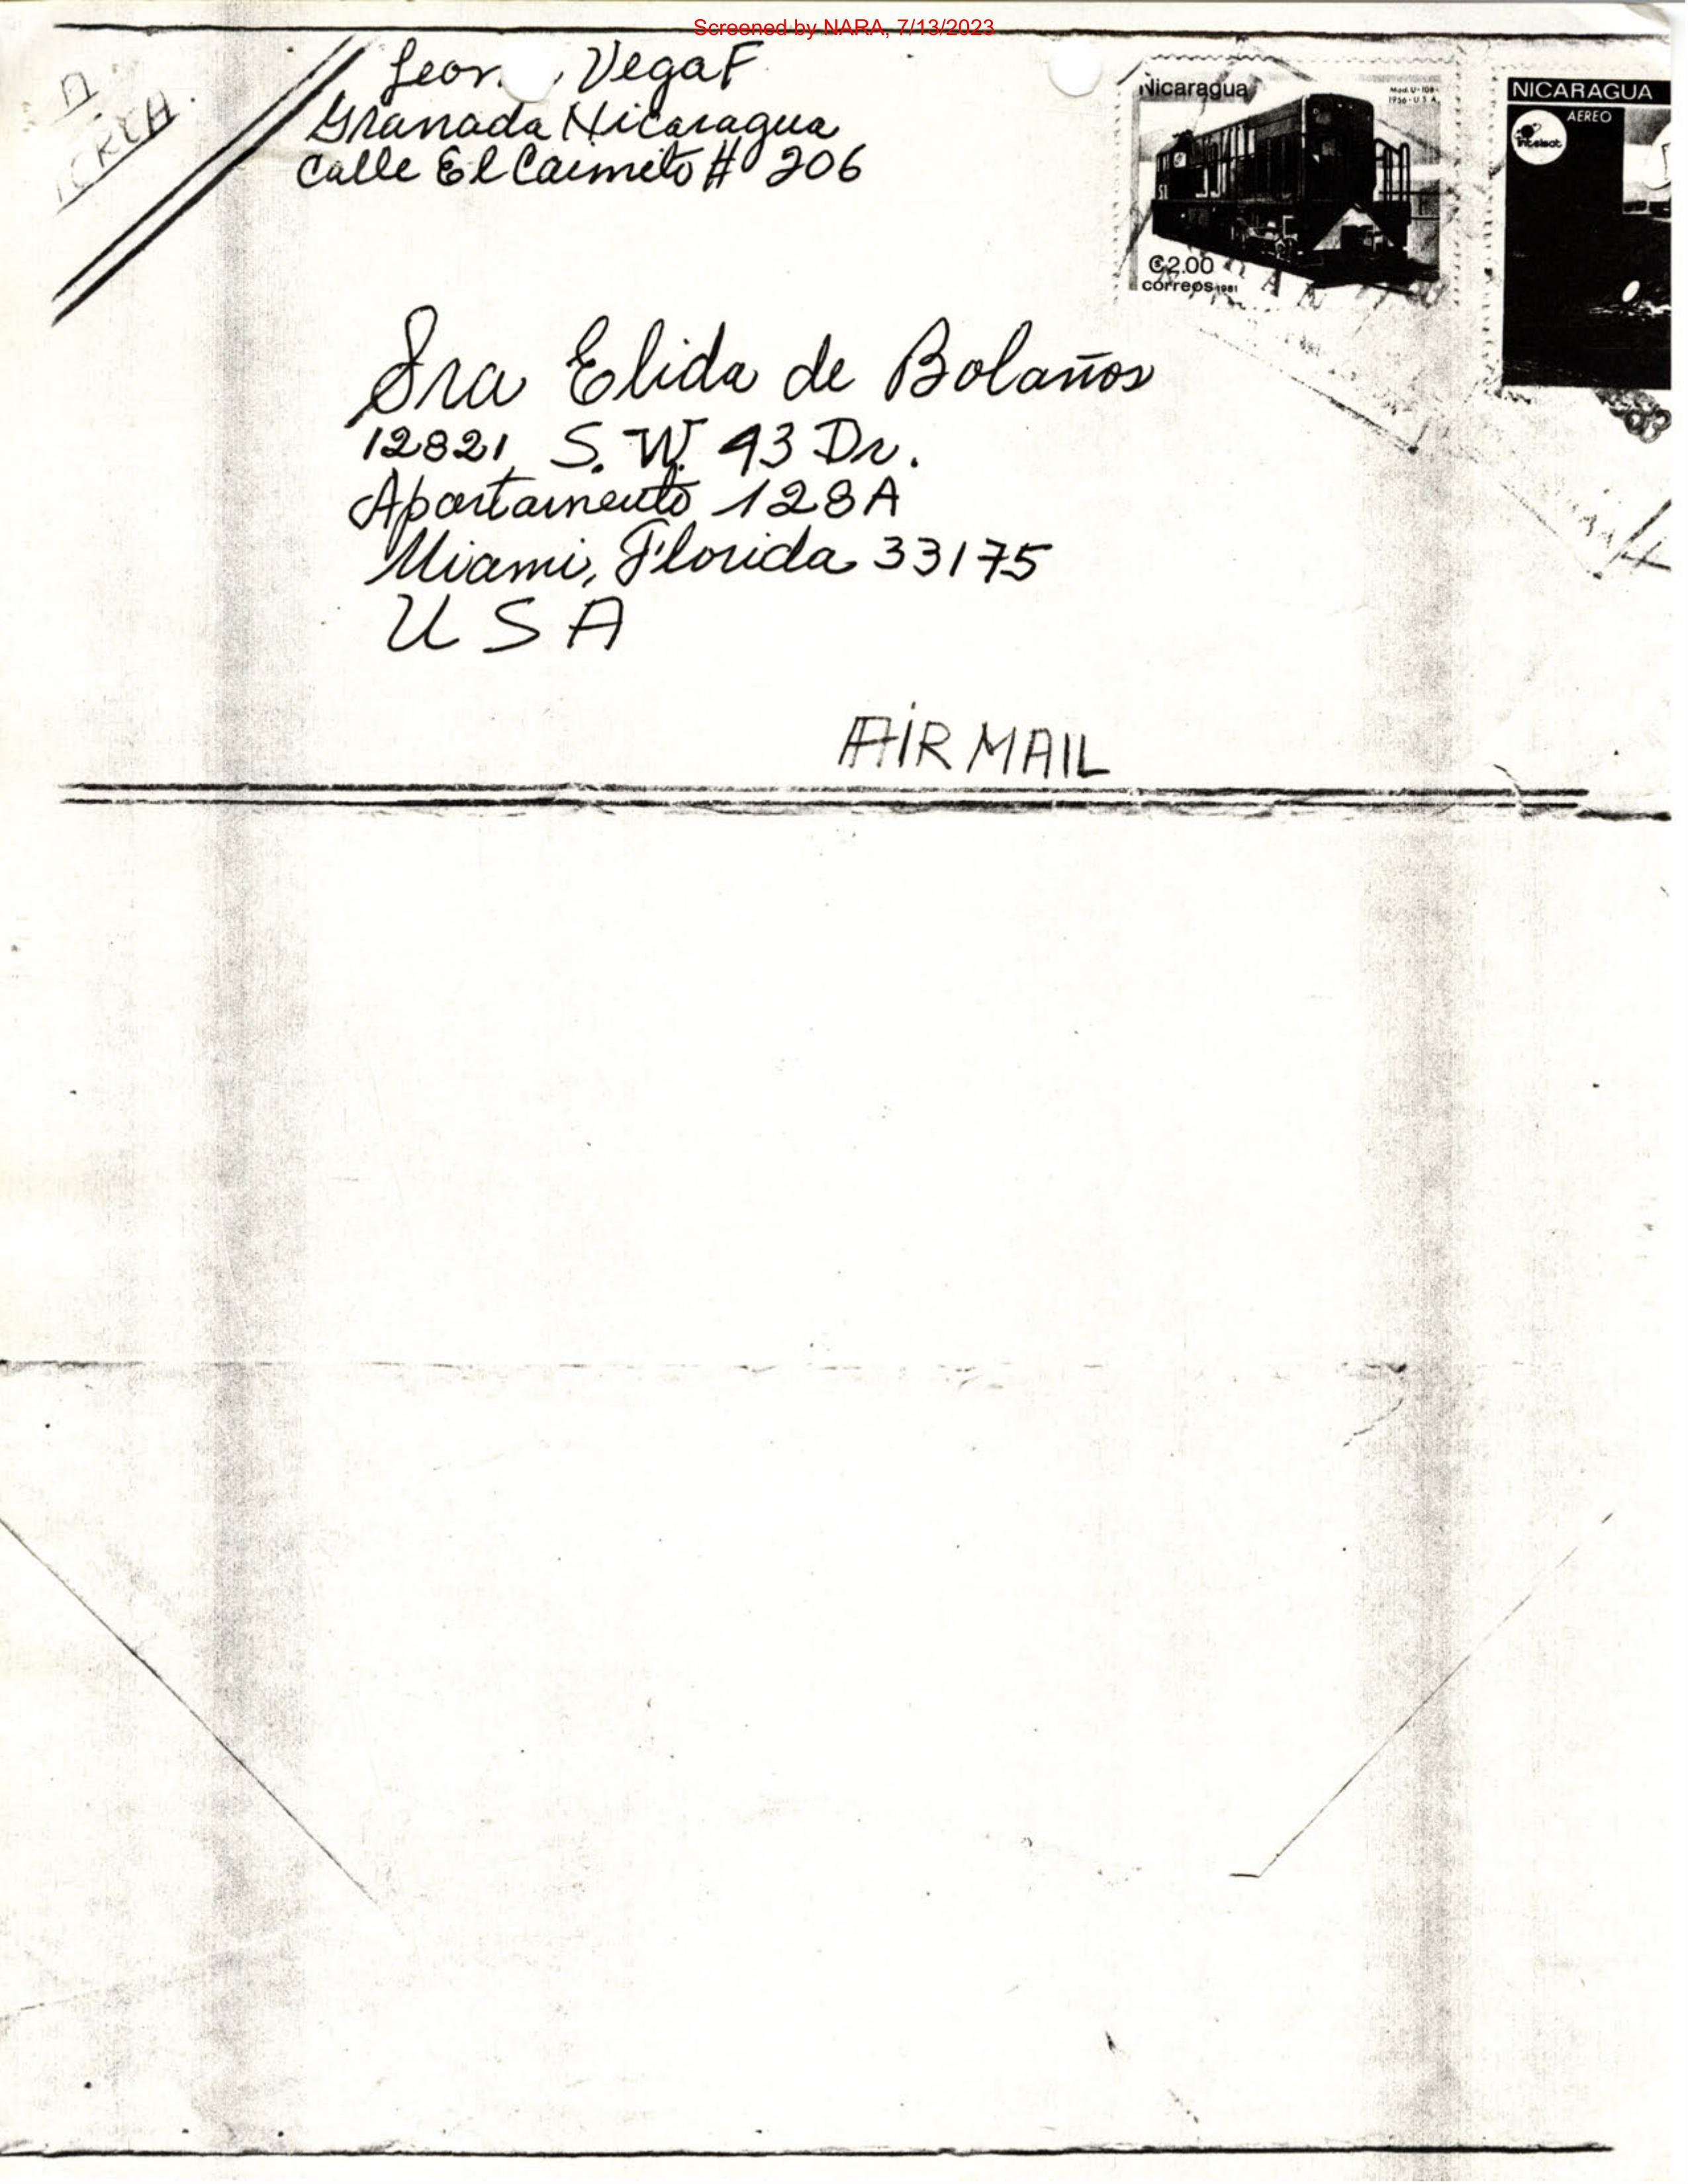 Screened by NARA, 7/13/2023
Vega F
Granada Nicaragua
Calle El Caimito # 206
Nicaragua
Mod. U-10B-
1956-U.S.A.
51
₡2.00
correos 1981
NICARAGUA
AEREO
intelsat
Sra Elida de Bolaños
12821 S. W. 43 Dr.
Apartamento 128A
Miami, Florida 33175
U S A
AIR MAIL